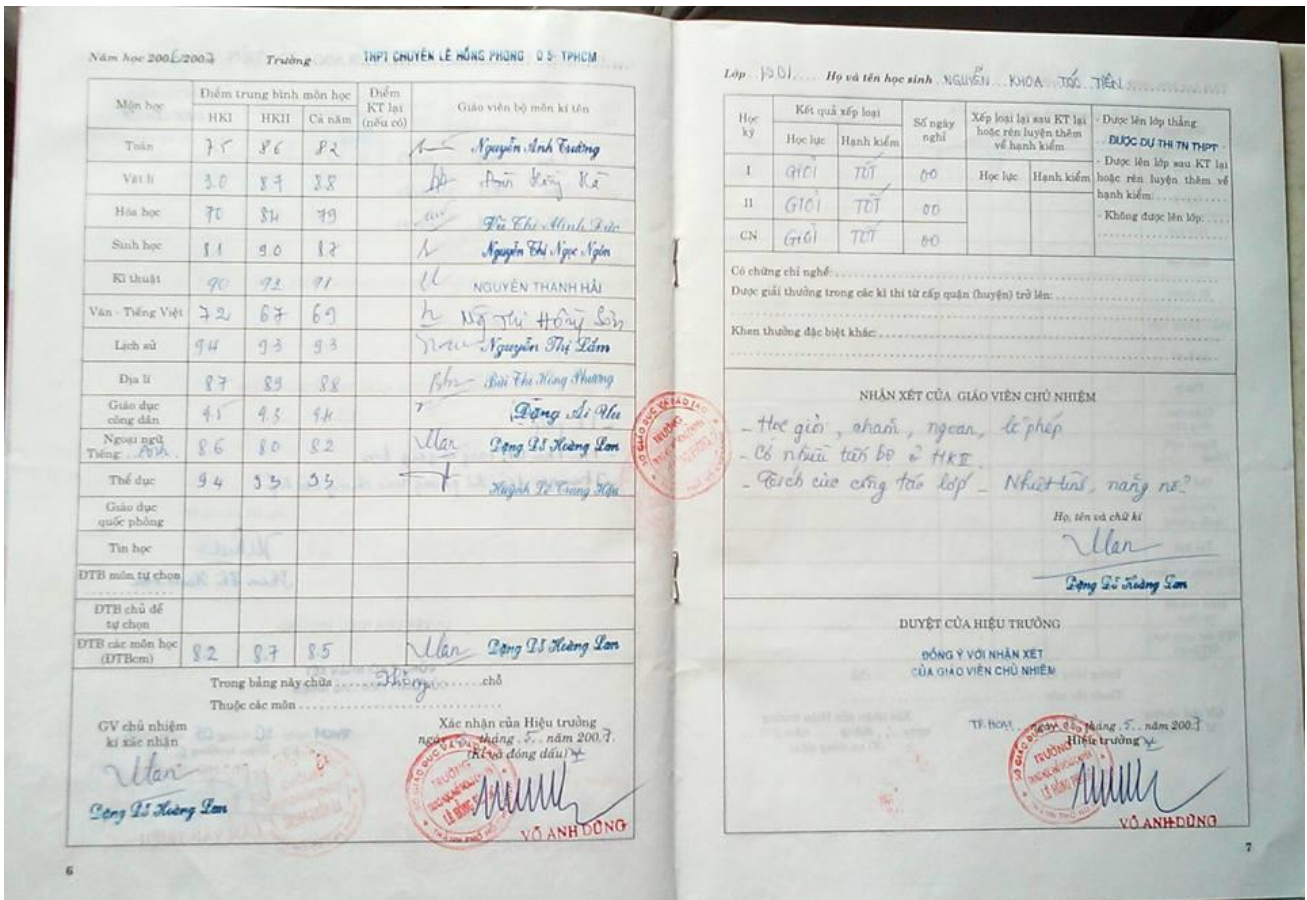 Năm học 2006/2007 Trường THPT CHUYÊN LÊ HỒNG PHONG Q 5- TPHCM
Môn học Điểm trung bình môn học Điểm KT lại (nếu có) Giáo viên bộ môn kí tên
HKI HKII Cả năm
Toán 7.5 8.6 8.2 Nguyễn Anh Trường
Vật lí 9.0 8.7 8.8
Hóa học 7.0 8.4 7.9 Vũ Thị Minh Đức
Sinh học 8.1 9.0 8.7 Nguyễn Thị Ngọc Ngôn
Kĩ thuật 9.0 9.2 9.1 NGUYỄN THANH HẢI
Văn - Tiếng Việt 7.2 6.7 6.9 Ng Thị Hồng Sơn
Lịch sử 9.4 9.3 9.3 Nguyễn Thị Lắm
Địa lí 8.7 8.9 8.8 Bùi Thị Hồng Phương
Giáo dục công dân 9.5 9.3 9.4 Đặng Ái Vu
Ngoại ngữ Tiếng: Anh 8.6 8.0 8.2 Đặng Dỗ Hoàng Lan
Thể dục 9.4 9.3 9.3 Huỳnh Lê Trung Hậu
Giáo dục quốc phòng
Tin học
ĐTB môn tự chọn
ĐTB chủ đề tự chọn
ĐTB các môn học (ĐTBcm) 8.2 8.7 8.5 Đặng Dỗ Hoàng Lan
Trong bảng này chữa Không chỗ
Thuộc các môn
GV chủ nhiệm kí xác nhận
Đặng Dỗ Hoàng Lan
Xác nhận của Hiệu trưởng
ngày tháng 5 năm 2007
(Kí và đóng dấu)
VÕ ANH DŨNG
6
Lớp Họ và tên học sinh NGUYỄN KHOA TÓC TIÊN
Học kỳ Kết quả xếp loại Số ngày nghỉ Xếp loại lại sau KT lại hoặc rèn luyện thêm về hạnh kiểm
Học lực Hạnh kiểm Học lực Hạnh kiểm
I GIỎI TỐT 00
II GIỎI TỐT 00
CN GIỎI TỐT 00
- Được lên lớp thẳng
ĐƯỢC DỰ THI TN THPT
- Được lên lớp sau KT lại
hoặc rèn luyện thêm về
hạnh kiểm:
- Không được lên lớp:
Có chứng chỉ nghề:
Được giải thưởng trong các kì thi từ cấp quận (huyện) trở lên:
Khen thưởng đặc biệt khác:
NHẬN XÉT CỦA GIÁO VIÊN CHỦ NHIỆM
- Học giỏi, ngoan, lễ phép
- Có nhiều tiến bộ ở HKII
- Tích cực công tác lớp - Nhiệt tình, năng nổ
Họ, tên và chữ kí
Đặng Dỗ Hoàng Lan
DUYỆT CỦA HIỆU TRƯỞNG
ĐỒNG Ý VỚI NHẬN XÉT
CỦA GIÁO VIÊN CHỦ NHIỆM
TP.HCM, ngày 05 tháng 5 năm 2007
Hiệu trưởng
VÕ ANH DŨNG
7